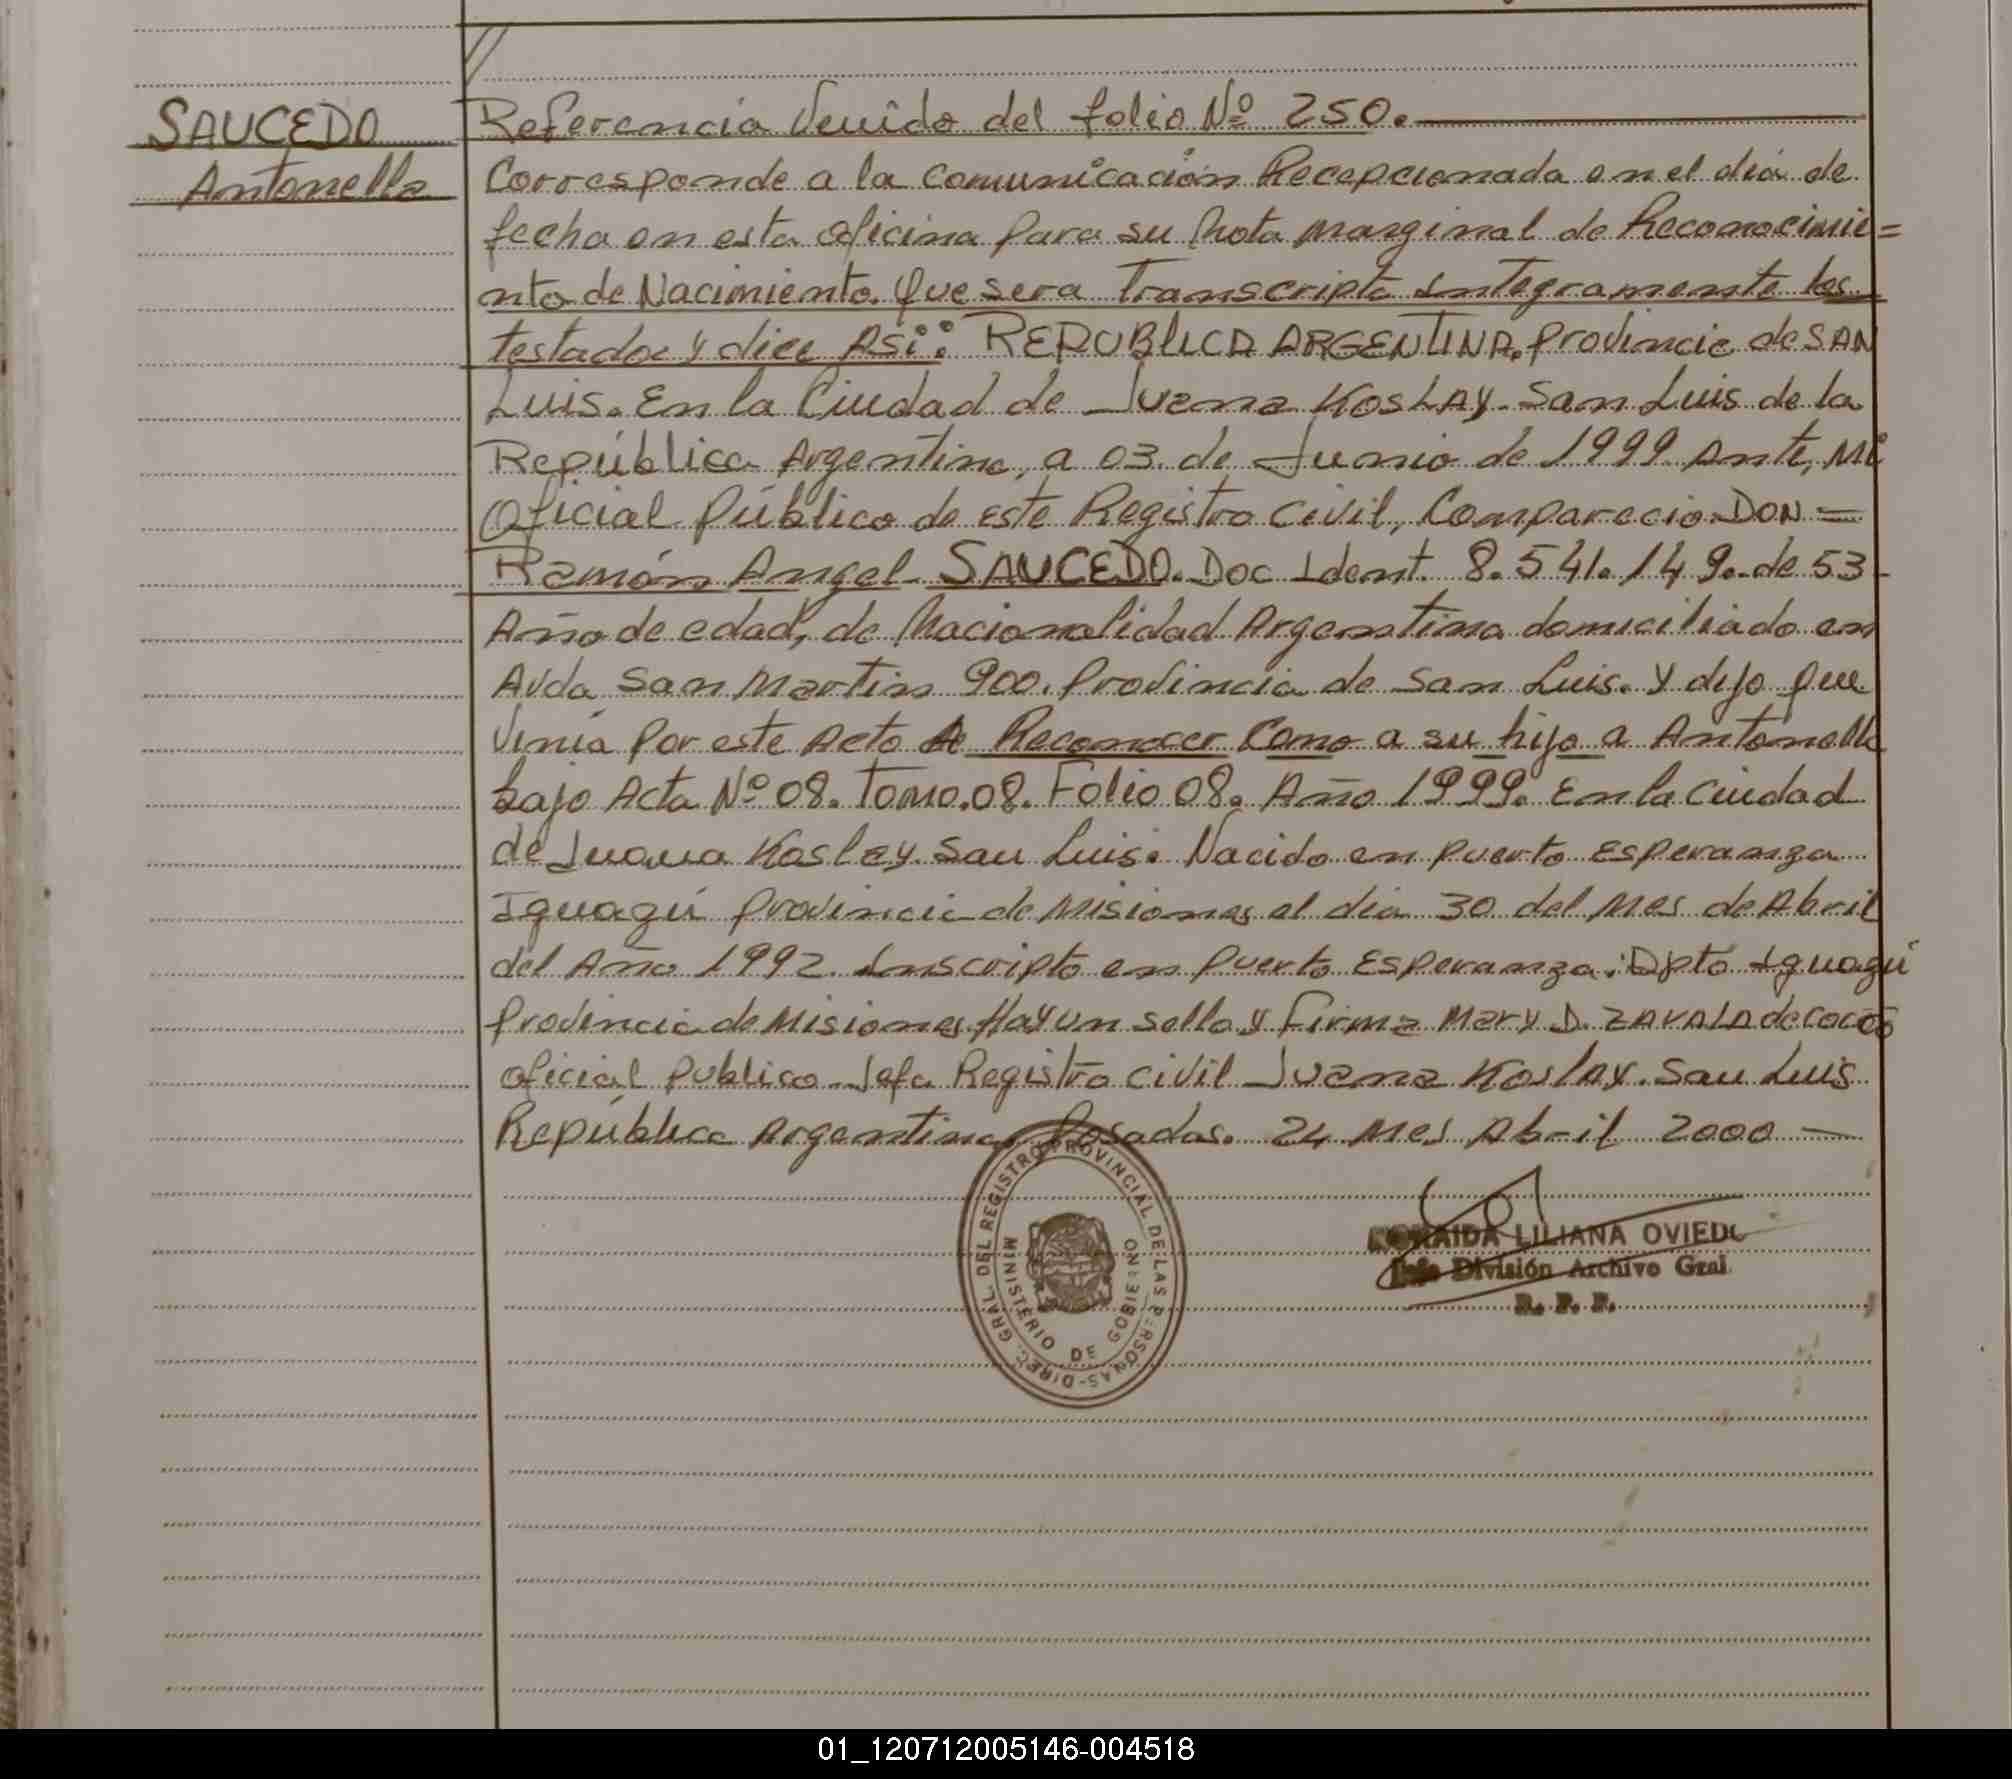 SAUCEDO
Antonella
Referencia Venido del folio Nº 250.
Corresponde a la comunicación Recepcionada en el día de
fecha en esta oficina para su Nota marginal de Reconocimie=
nto de Nacimiento. Que sera Transcripta Integramente los
testados y dice Asi: REPUBLICA ARGENTINA. Provincia de SAN
Luis. En la Ciudad de Juana KOSLAY. San Luis de la
República Argentina, a 03. de Junio de 1999. Ante, Mi
Oficial Público de este Registro Civil, Comparecio DON =
Ramón Angel SAUCEDO. Doc Ident. 8.541.149. de 53
Año de edad, de Nacionalidad Argentina domiciliado en
Avda San Martin 900. Provincia de San Luis. Y dijo que
Venia por este Acto de Reconocer Como a su hijo a Antonella
bajo Acta Nº 08. Tomo. 08. Folio 08. Año 1999. En la ciudad
de Juana Koslay San Luis. Nacido en puerto Esperanza
Iguazú Provincia de Misiones el dia 30 del Mes de Abril
del Año 1992. Inscripto en Puerto Esperanza. Dpto Iguazú
Provincia de Misiones Hay un sello y Firma Mary D. ZAVALA de
oficial publico Jefa Registro civil Juana Koslay. San Luis
República Argentina. Posadas. 24 Mes Abril 2000
DIREC. GRAL. DEL REGISTRO PROVINCIAL DE LAS PERSONAS
MINISTERIO DE GOBIERNO
LILIANA OVIEDO
Jefe División Archivo Gral.
R. P. P.
01_120712005146-004518